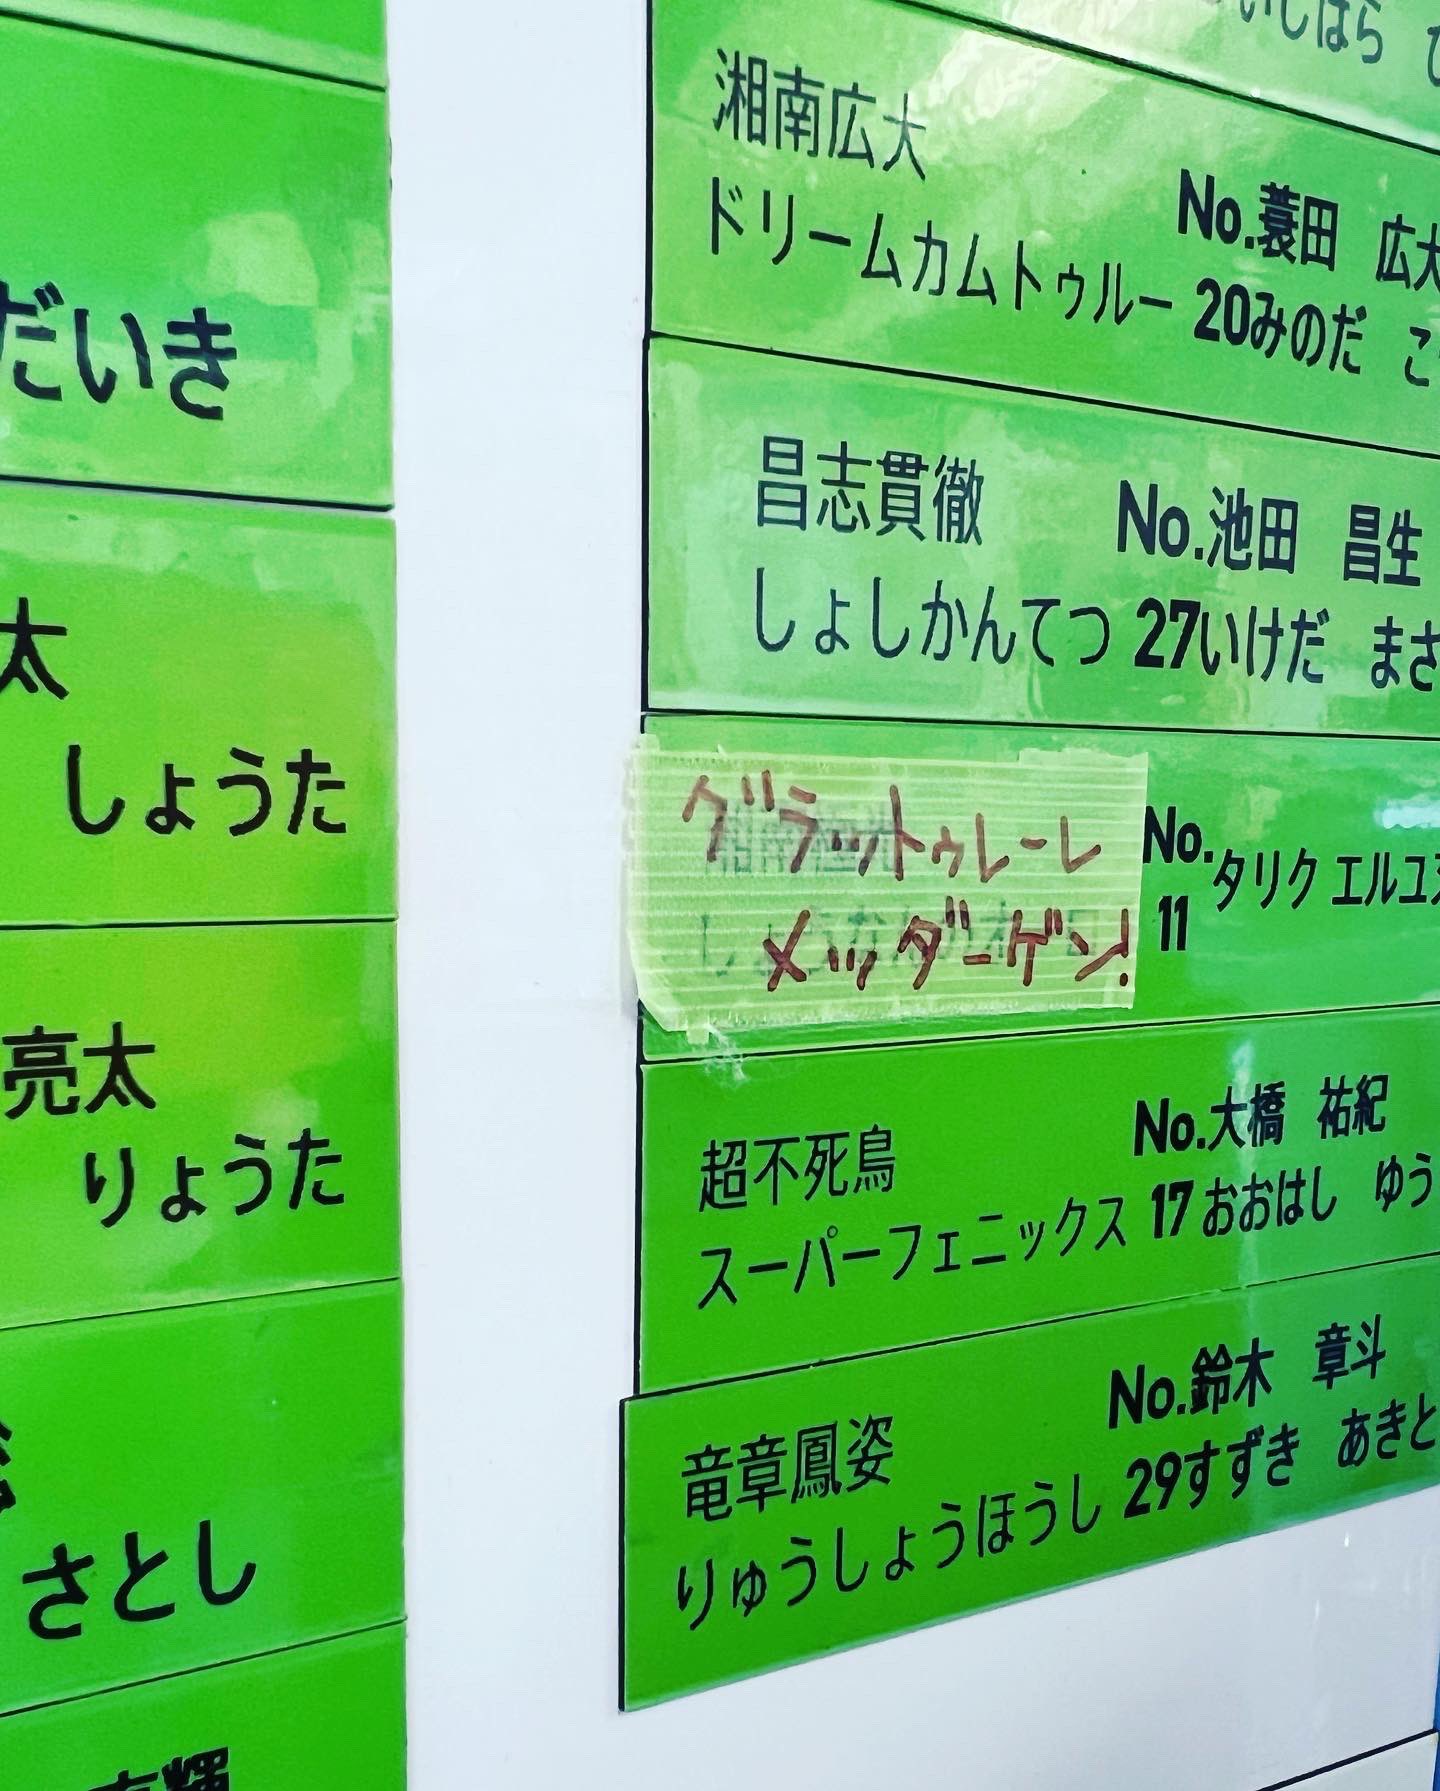 だいき
太
しょうた
亮太
りょうた
さとし
いしはら
湘南広大
ドリームカムトゥルー
No.
20
蓑田 広大
みのだ
昌志貫徹
しょしかんてつ
No.
27
池田 昌生
いけだ まさ
グラットゥレーレ
メッダーゲン!
No.
11
タリク エルユヌ
超不死鳥
スーパーフェニックス
No.
17
大橋 祐紀
おおはし ゆう
竜章鳳姿
りゅうしょうほうし
No.
29
鈴木 章斗
すずき あきと